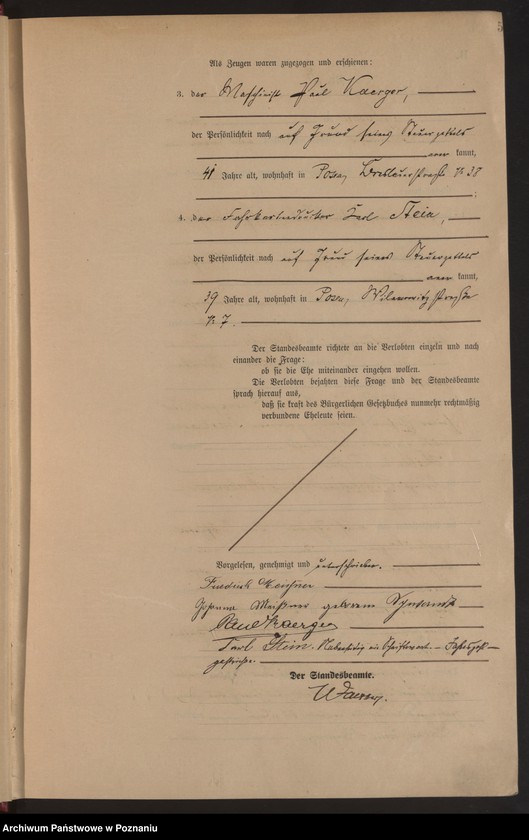 5
Als Zeugen waren zugezogen und erschienen:
3. der Maschinist Paul Kaerger,
der Persönlichkeit nach auf Grund seines Steuerzettels
kannt,
41 Jahre alt, wohnhaft in Posen, Breslauerstraße N 38
;
4. der Karl Stein,
der Persönlichkeit nach auf Grund seines Steuerzettels
kannt,
39 Jahre alt, wohnhaft in Posen,
N 7.
Der Standesbeamte richtete an die Verlobten einzeln und nach
einander die Frage:
ob sie die Ehe miteinander eingehen wollen.
Die Verlobten bejahten diese Frage und der Standesbeamte
sprach hierauf aus,
daß sie kraft des Bürgerlichen Gesetzbuches nunmehr rechtmäßig
verbundene Eheleute seien.
Vorgelesen, genehmigt und unterschrieben.
Friedrich
Johanna geborene
Paul Kaerger
Karl Stein.
gestrichen.
Der Standesbeamte.
Archiwum Państwowe w Poznaniu